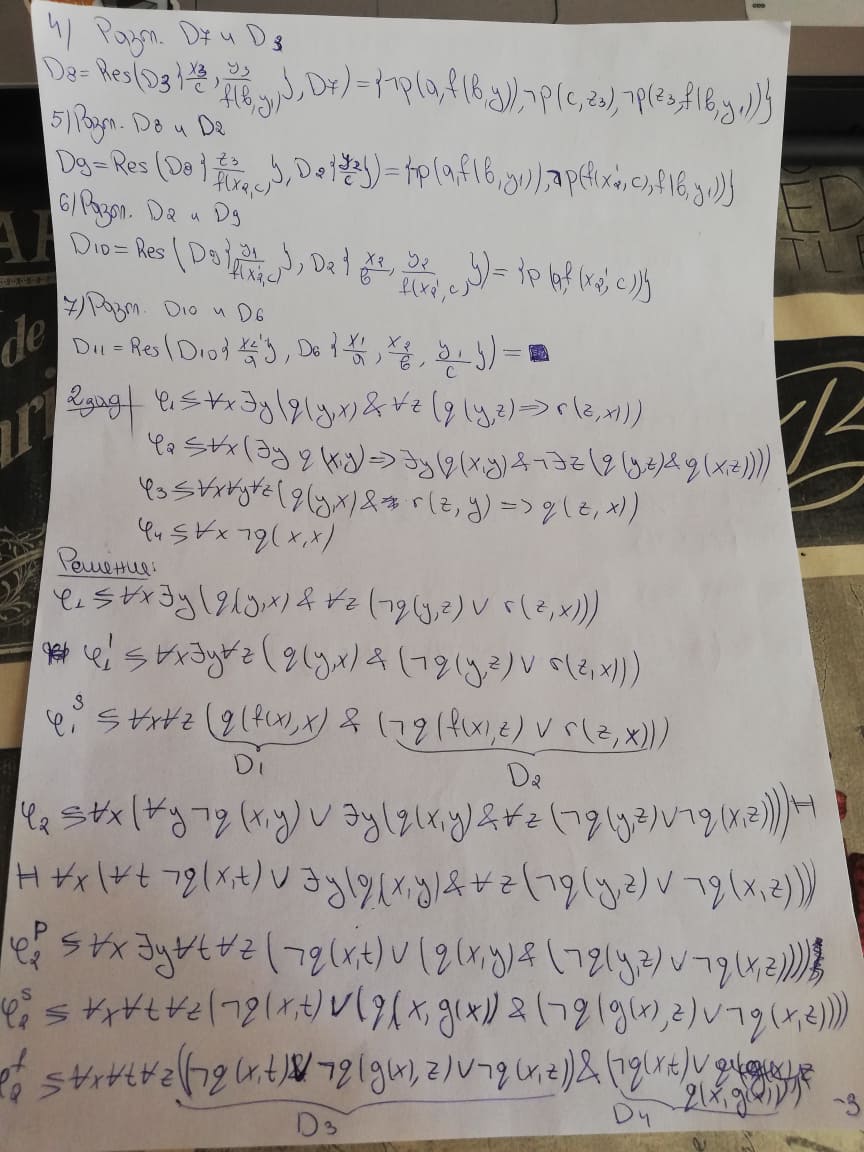 4) Разгл. D7 и D3
D8 = Res(D3{x3/c, y3/f(b,y1)}, D7) = {¬p(a,f(b,y)), ¬p(c,z3), ¬p(z3,f(b,y1))}
5) Разгл. D8 и D2
D9 = Res(D8{z3/f(x2',c)}, D2{y2/c}) = {¬p(a,f(b,y1)), ¬p(f(x2',c),f(b,y1))}
6) Разгл. D2 и D9
D10 = Res(D9{y1/f(x2',c)}, D2{x2/b, y2/f(x2',c)}) = {p(a,f(x2',c))}
7) Разгл. D10 и D6
D11 = Res(D10{x2'/a}, D6{x1/a, x2/b, y1/c}) = ■
2 зад φ1 ≤ ∀x∃y(q(y,x) & ∀z(q(y,z) => r(z,x)))
φ2 ≤ ∀x(∃y q(x,y) => ∃y(q(x,y) & ¬∃z(q(y,z) & q(x,z))))
φ3 ≤ ∀x∀y∀z(q(y,x) & r(z,y) => q(z,x))
φ4 ≤ ∀x ¬q(x,x)
Решение:
φ1 ≤ ∀x∃y(q(y,x) & ∀z(¬q(y,z) ∨ r(z,x)))
φ1' ≤ ∀x∃y∀z(q(y,x) & (¬q(y,z) ∨ r(z,x)))
φ1^S ≤ ∀x∀z(q(f(x),x) & (¬q(f(x),z) ∨ r(z,x)))
D1 D2
φ2 ≤ ∀x(∀y ¬q(x,y) ∨ ∃y(q(x,y) & ∀z(¬q(y,z) ∨ ¬q(x,z)))) H
H ∀x(∀t ¬q(x,t) ∨ ∃y(q(x,y) & ∀z(¬q(y,z) ∨ ¬q(x,z)))
φ2^P ≤ ∀x∃y∀t∀z(¬q(x,t) ∨ (q(x,y) & (¬q(y,z) ∨ ¬q(x,z))))
φ2^S ≤ ∀x∀t∀z(¬q(x,t) ∨ (q(x,g(x)) & (¬q(g(x),z) ∨ ¬q(x,z))))
φ2^f ≤ ∀x∀t∀z((¬q(x,t) ∨ ¬q(g(x),z) ∨ ¬q(x,z)) & (¬q(x,t) ∨
q(x,g(x))))
D3 D4
-3